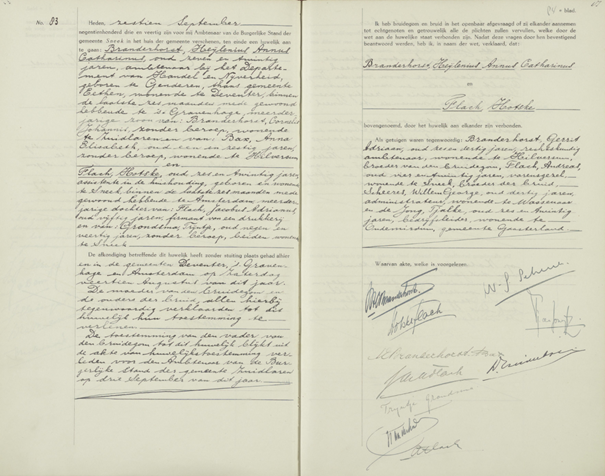 No. 93
Heden, zestien September
negentienhonderd drie en veertig zijn voor mij Ambtenaar van de Burgerlijke Stand der
gemeente Sneek in het huis der gemeente verschenen, ten einde een huwelijk aan
te gaan: Branderhorst, Heijlenius Annus
Catharinus oud rens en twintig
jaren, ambtenaar bij het Departe-
ment van Handel en Nijverheid,
geboren te Genderen, thans gemeente
Eethen, wonende te Deventer, binnen
de laatste zes maanden mede gewoond
hebbende te 's-Gravenhage meerder-
jarige zoon van: Branderhorst, Cornelis
Johannis, zonder beroep, wonende
te Zuidlaren en van: Bax, Anna
Elisabeth, oud een en zestig jaren,
zonder beroep, wonende te Hilversum
en
Flach, Hotske, oud zes en twintig jaren,
assistente in de huishouding, geboren en wonende
te Sneek, binnen de laatste zes maanden mede
gewoond hebbende te Amsterdam, meerder-
jarige dochter van: Flach, Jacobus Adrianus
oud vijftig jaren, firmant van een drukkerij
en van: Grondsma, Trijntje, oud negen en
veertig jaren, zonder beroep, beiden wonende
te Sneek
De afkondiging betreffende dit huwelijk heeft zonder stuiting plaats gehad alhier
en in de gemeenten Deventer, 's Graven-
hage en Amsterdam op Zaterdag
veertien Augustus van dit jaar.
De moeder van den bruidegom en
de ouders der bruid, allen hierbij
tegenwoordig verklaarden tot dit
huwelijk hun toestemming te
verleenen.
De toestemming van den vader van
den bruidegom tot dit huwelijk blijkt uit
de akte van huwelijkstoestemming ver-
leden voor den Ambtenaar van de Bur-
gerlijke Stand der gemeente Zuidlaren
op drie September van dit jaar
blad.
Ik heb bruidegom en bruid in het openbaar afgevraagd of zij elkander aannemen
tot echtgenooten en getrouwelijk alle de plichten zullen vervullen, welke door de
wet aan de huwelijke staat verbonden zijn. Nadat deze vragen door hen bevestigend
beantwoord werden, heb ik, in naam der wet, verklaard, dat:
Branderhorst, Heijlenius Annus Catharinus
en
Flach, Hotske
bovengenoemd, door het huwelijk met elkander zijn verbonden.
Als getuigen waren tegenwoordig: Branderhorst, Gerrit
Adriaan, oud zes en dertig jaren, rijkskundig
ambtenaar, wonende te Hilversum,
broeder van den bruidegom, Flach, Andreas,
oud vier en twintig jaren, varensgezel
wonende te Sneek, broeder der bruid,
Scheurer, Willem George, oud dertig jaren,
administrateur, wonende te Wassenaar
en de Jong, Tjalke, oud zes en twintig
jaren, bedrijfsleider, wonende te
Oudemirdum, gemeente Gaasterland
Waarvan akte, welke is voorgelezen.
Trijntje Grondsma